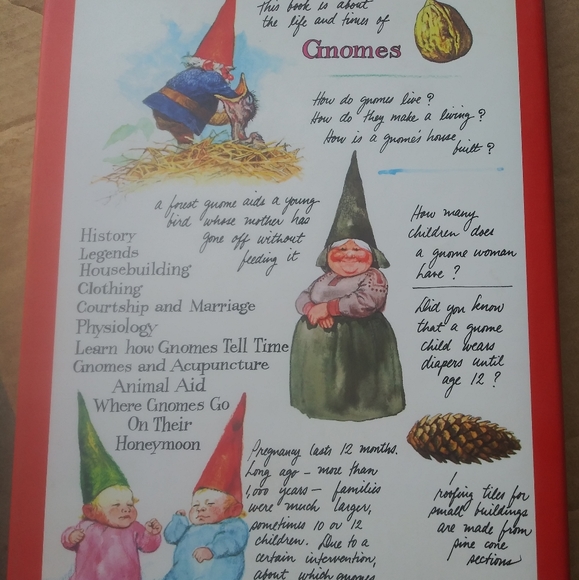 This book is about
the life and times of
Gnomes
How do gnomes live?
How do they make a living?
How is a gnome's house
built?
a forest gnome aids a young
bird whose mother has
gone off without
feeding it
How many
children does
a gnome woman
have?
History
Legends
Housebuilding
Clothing
Courtship and Marriage
Physiology
Learn how Gnomes Tell Time
Gnomes and Acupuncture
Animal Aid
Where Gnomes Go
On Their
Honeymoon
Did you know
that a gnome
child wears
diapers until
age 12?
Pregnancy lasts 12 months.
Long ago - more than
1,000 years - families
were much larger,
sometimes 10 or 12
children. Due to a
certain intervention,
about which gnomes
roofing tiles for
small buildings
are made from
pine cone
sections